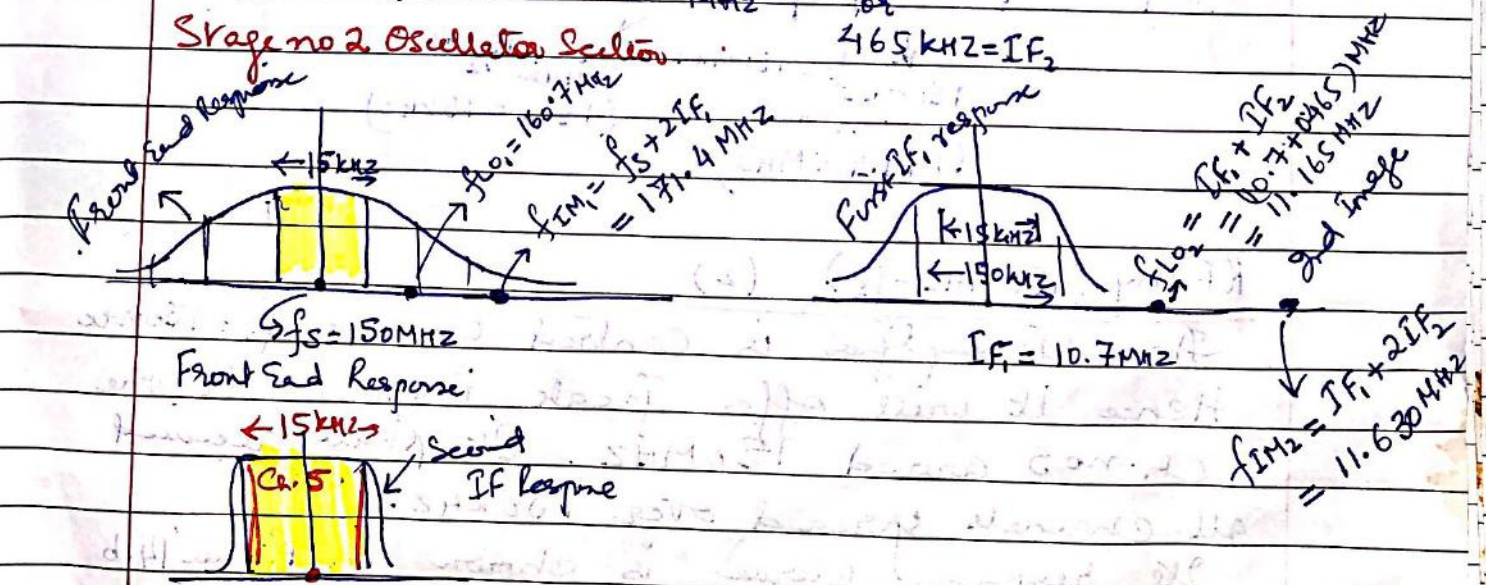 MHz, or
Stage no 2 Oscillator Section
465 KHZ = IF₂
Front End Response
←15 kHz→
fLO₁ = 160.7 MHz
fIM₁ = fs + 2IF₁
= 171.4 MHZ
fs = 150 MHZ
Front End Response
First IF, response
←15kHz→
←150kHz→
IF₁ = 10.7 MHZ
fLO₂ = IF₁ + IF₂
= (10.7 + 0.465) MHZ
= 11.165 MHZ
2nd Image
fIM₂ = IF₁ + 2IF₂
= 11.630 MHZ
←15 kHz→
Ch. 5
Second
IF Response